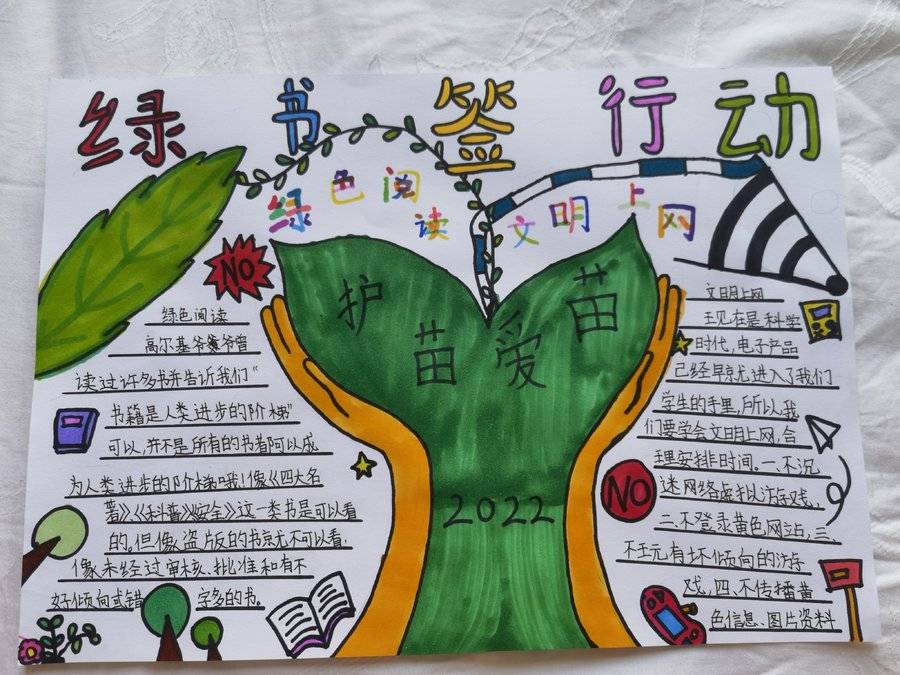 绿书签行动
绿色阅读
文明上网
NO
护苗爱苗
2022
绿色阅读
高尔基爷爷曾
读过许多书并告诉我们“
书籍是人类进步的阶梯”
可以,并不是所有的书者阿以成
为人类进步的阶梯哦!像《四大名
著》《科普》《安全》这一类书是可以看
的。但像盗版的书就不可以看,
像未经过审核、批准和有不
好倾向或错字多的书。
文明上网
现在是科学
时代,电子产品
己经早就进入了我们
学生的手里,所以,我
们要学会文明上网,合
理安排时间。一、不沉
迷网络虚拟游戏,
二、不登录黄色网站,三、
不玩有坏倾向的游
戏,四、不传播黄
色信息、图片资料
NO